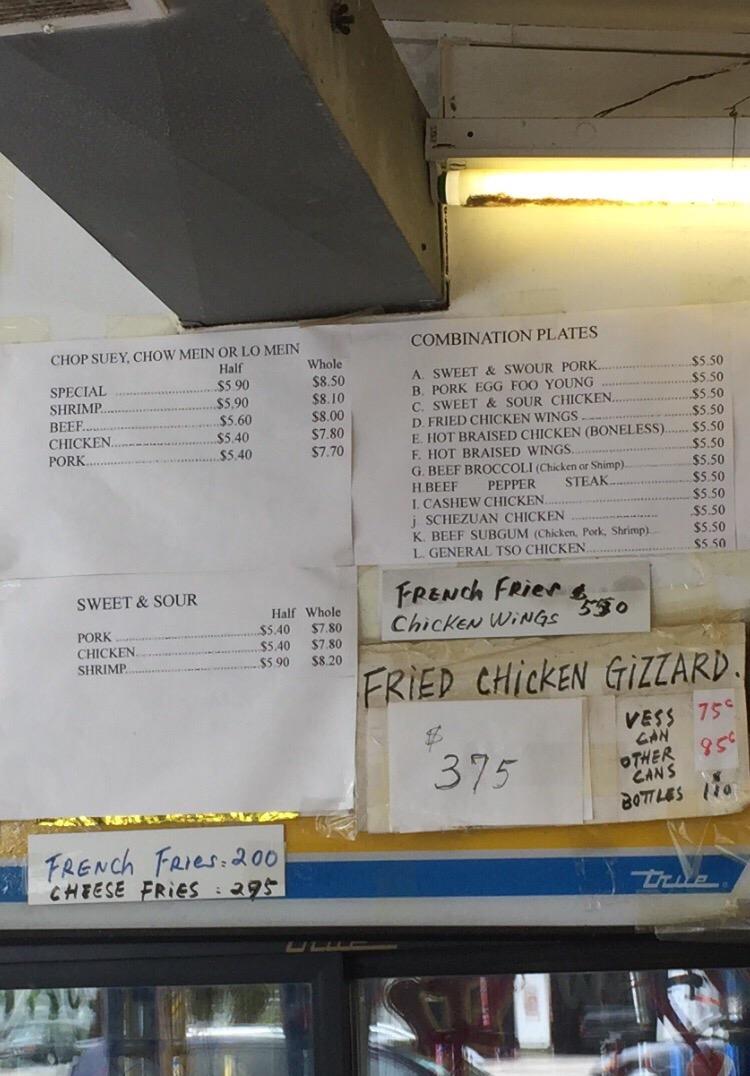 CHOP SUEY, CHOW MEIN OR LO MEIN
Half Whole
SPECIAL ............ $5.90 $8.50
SHRIMP............ $5.90 $8.10
BEEF............ $5.60 $8.00
CHICKEN............ $5.40 $7.80
PORK............ $5.40 $7.70
COMBINATION PLATES
A. SWEET & SWOUR PORK............ $5.50
B. PORK EGG FOO YOUNG ............ $5.50
C. SWEET & SOUR CHICKEN............ $5.50
D. FRIED CHICKEN WINGS ............ $5.50
E. HOT BRAISED CHICKEN (BONELESS)...... $5.50
F. HOT BRAISED WINGS............ $5.50
G. BEEF BROCCOLI (Chicken or Shimp)............ $5.50
H.BEEF PEPPER STEAK............ $5.50
I. CASHEW CHICKEN............ $5.50
j. SCHEZUAN CHICKEN ............ $5.50
K. BEEF SUBGUM (Chicken, Pork, Shrimp)............ $5.50
L. GENERAL TSO CHICKEN............ $5.50
SWEET & SOUR
Half Whole
PORK ............ $5.40 $7.80
CHICKEN............ $5.40 $7.80
SHRIMP............ $5 90 $8.20
FRENCH FRIES $
CHICKEN WINGS 550
FRIED CHICKEN GIZZARD.
$
375
VESS 75¢
CAN
OTHER 85¢
CANS
BOTTLES $110
FRENCH FRIES: 200
CHEESE FRIES : 275
True
True